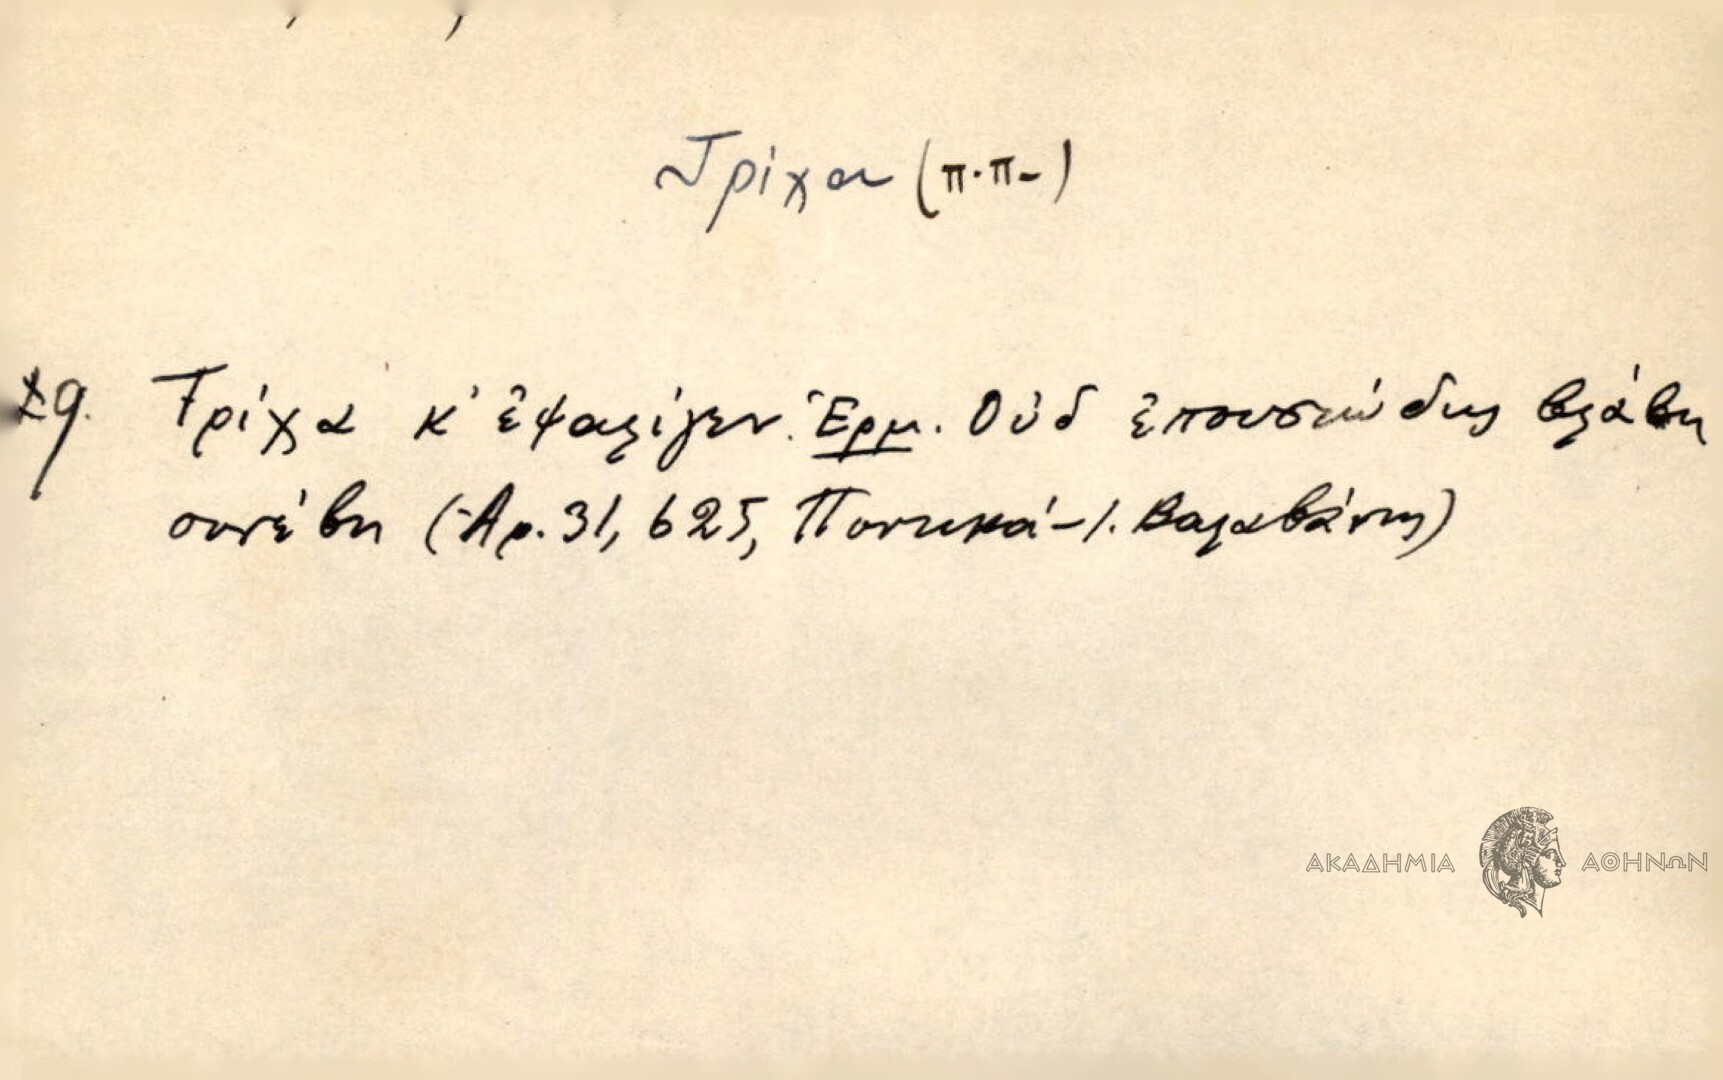 Τρίχα (π.π-)
29. Τρίχα κ' ἐψαλίγεν. Ἑρμ. Οὐδ ἐπουσιώδης βλάβη
συνέβη (Ἀρ. 31, 625, Ποντικά - Ι. Βαλαβάνης)
ΑΚΑΔΗΜΙΑ ΑΘΗΝΩΝ